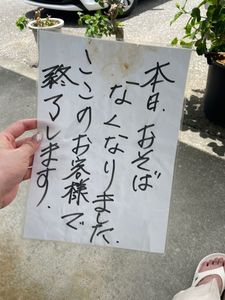 本日、おそば
なくなりました.
ここのお客様で
終了します.